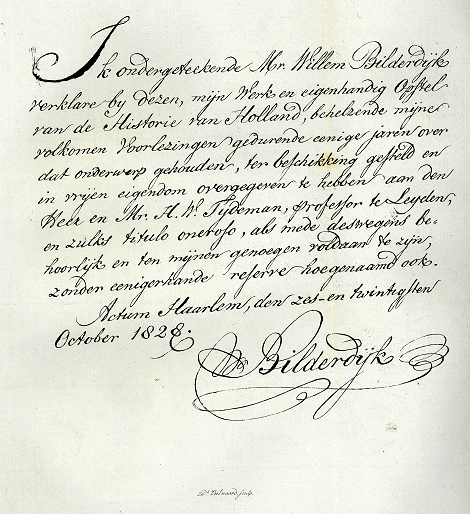 Ik ondergeteekende Mr. Willem Bilderdijk
verklare by dezen, mijn Werk en eigenhandig Opstel
van de Historie van Holland, behelzende mijne
volkomen Voorlezingen gedurende eenige jaren over
dat onderwerp gehouden, ter beschikking gesteld en
in vrijen eigendom overgegeven te hebben aan den
Heer en Mr. H. W. Tydeman, professor te Leyden,
en zulks titulo oneroso, als mede deswegens be-
hoorlijk en ten mijnen genoegen voldaan te zijn,
zonder eenigerhande reserve hoegenaamd ook.
Actum Haarlem, den zes-en twintigsten
October 1828.
Bilderdijk
sculp.